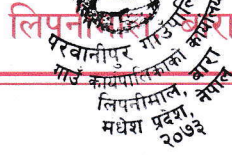 लिपनीमाल, बारा
परवानीपुर गाउँपालिका
गाउँ कार्यपालिकाको कार्यालय
लिपनीमाल, बारा
मधेश प्रदेश, नेपाल
२०७३